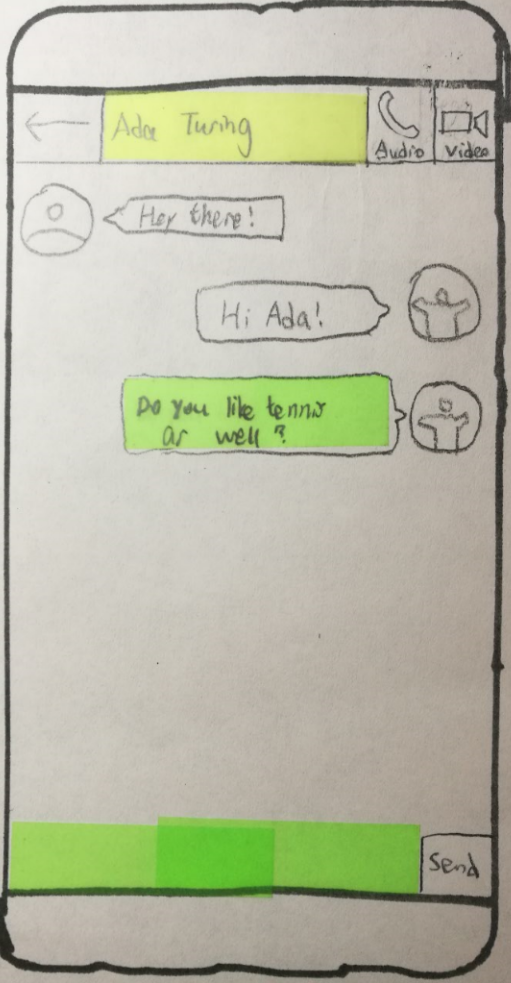 Ada Turing
Audio
Video
Hey there!
Hi Ada!
Do you like tennis
as well?
Send